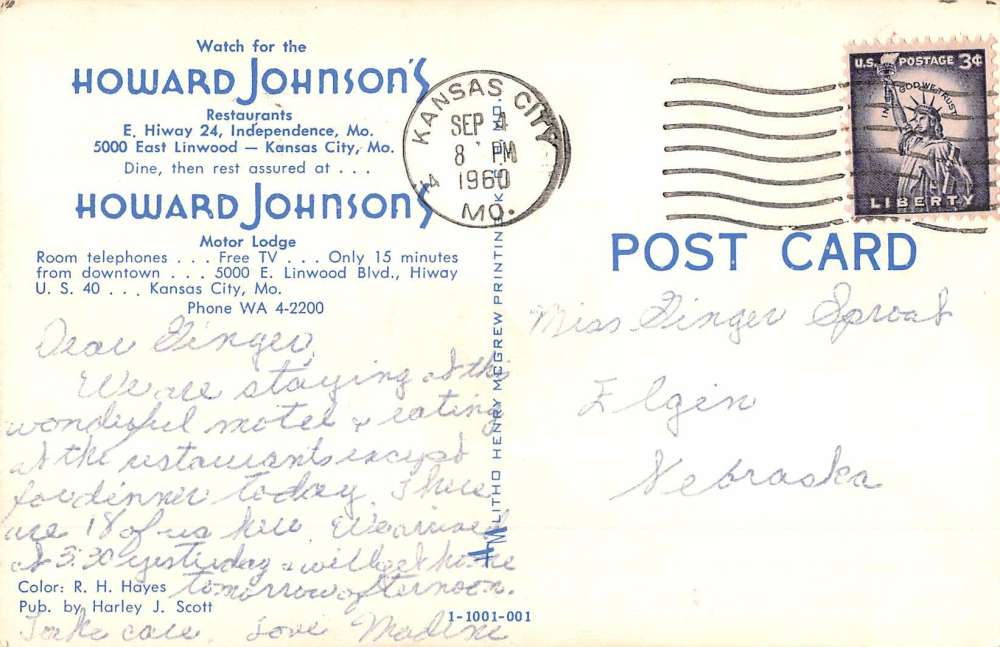 Watch for the
HOWARD JOHNSON'S
Restaurants
E. Hiway 24, Independence, Mo.
5000 East Linwood — Kansas City, Mo.
Dine, then rest assured at . . .
HOWARD JOHNSON'S
Motor Lodge
Room telephones . . . Free TV . . . Only 15 minutes
from downtown . . . 5000 E. Linwood Blvd., Hiway
U. S. 40 . . . Kansas City, Mo.
Phone WA 4-2200
Dear Ginger,
We are staying at this
wonderful motel & eating
at the restaurants except
for dinner today. There
are 18 of us here. We arrived
at 3:30 yesterday & will get home
tomorrow afternoon.
Take care. Love Madine
Color: R. H. Hayes
Pub. by Harley J. Scott
LITHO HENRY MCGREW PRINTING
1-1001-001
KANSAS CITY
SEP 4
8 PM
1960
MO.
U.S. POSTAGE 3¢
IN GOD WE TRUST
LIBERTY
POST CARD
Miss Ginger Sproat
Elgin
Nebraska